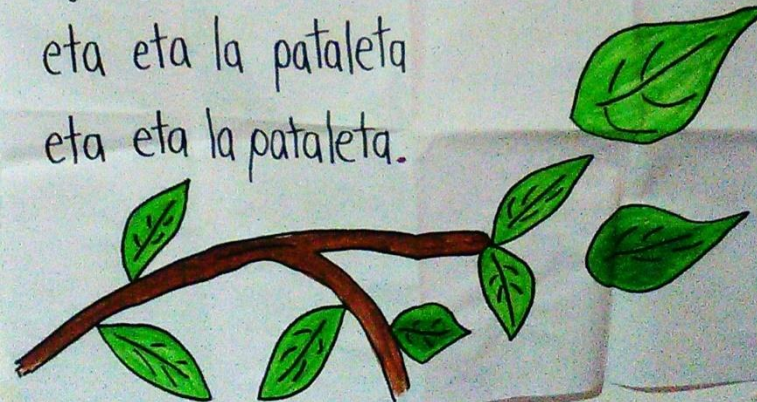 eta eta la pataleta
eta eta la pataleta.